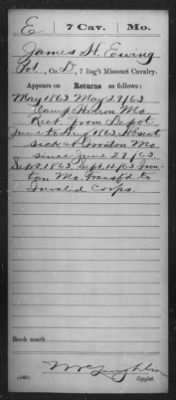 E 7 Cav. Mo.
James H. Ewing
Pvt, Co. D, 7 Reg't Missouri Cavalry.
Appears on Returns as follows:
May 1863 May 29/63
Camp Hutson Mo
Rect from Depot
June to Aug 1863 Absent
sick at Ironton Mo.
since June 29/63
Sept. 1863 Sept. 12/63 Iron-
ton Mo. Transf'd to
Invalid Corps.
Book mark:
(546)
Copyist.